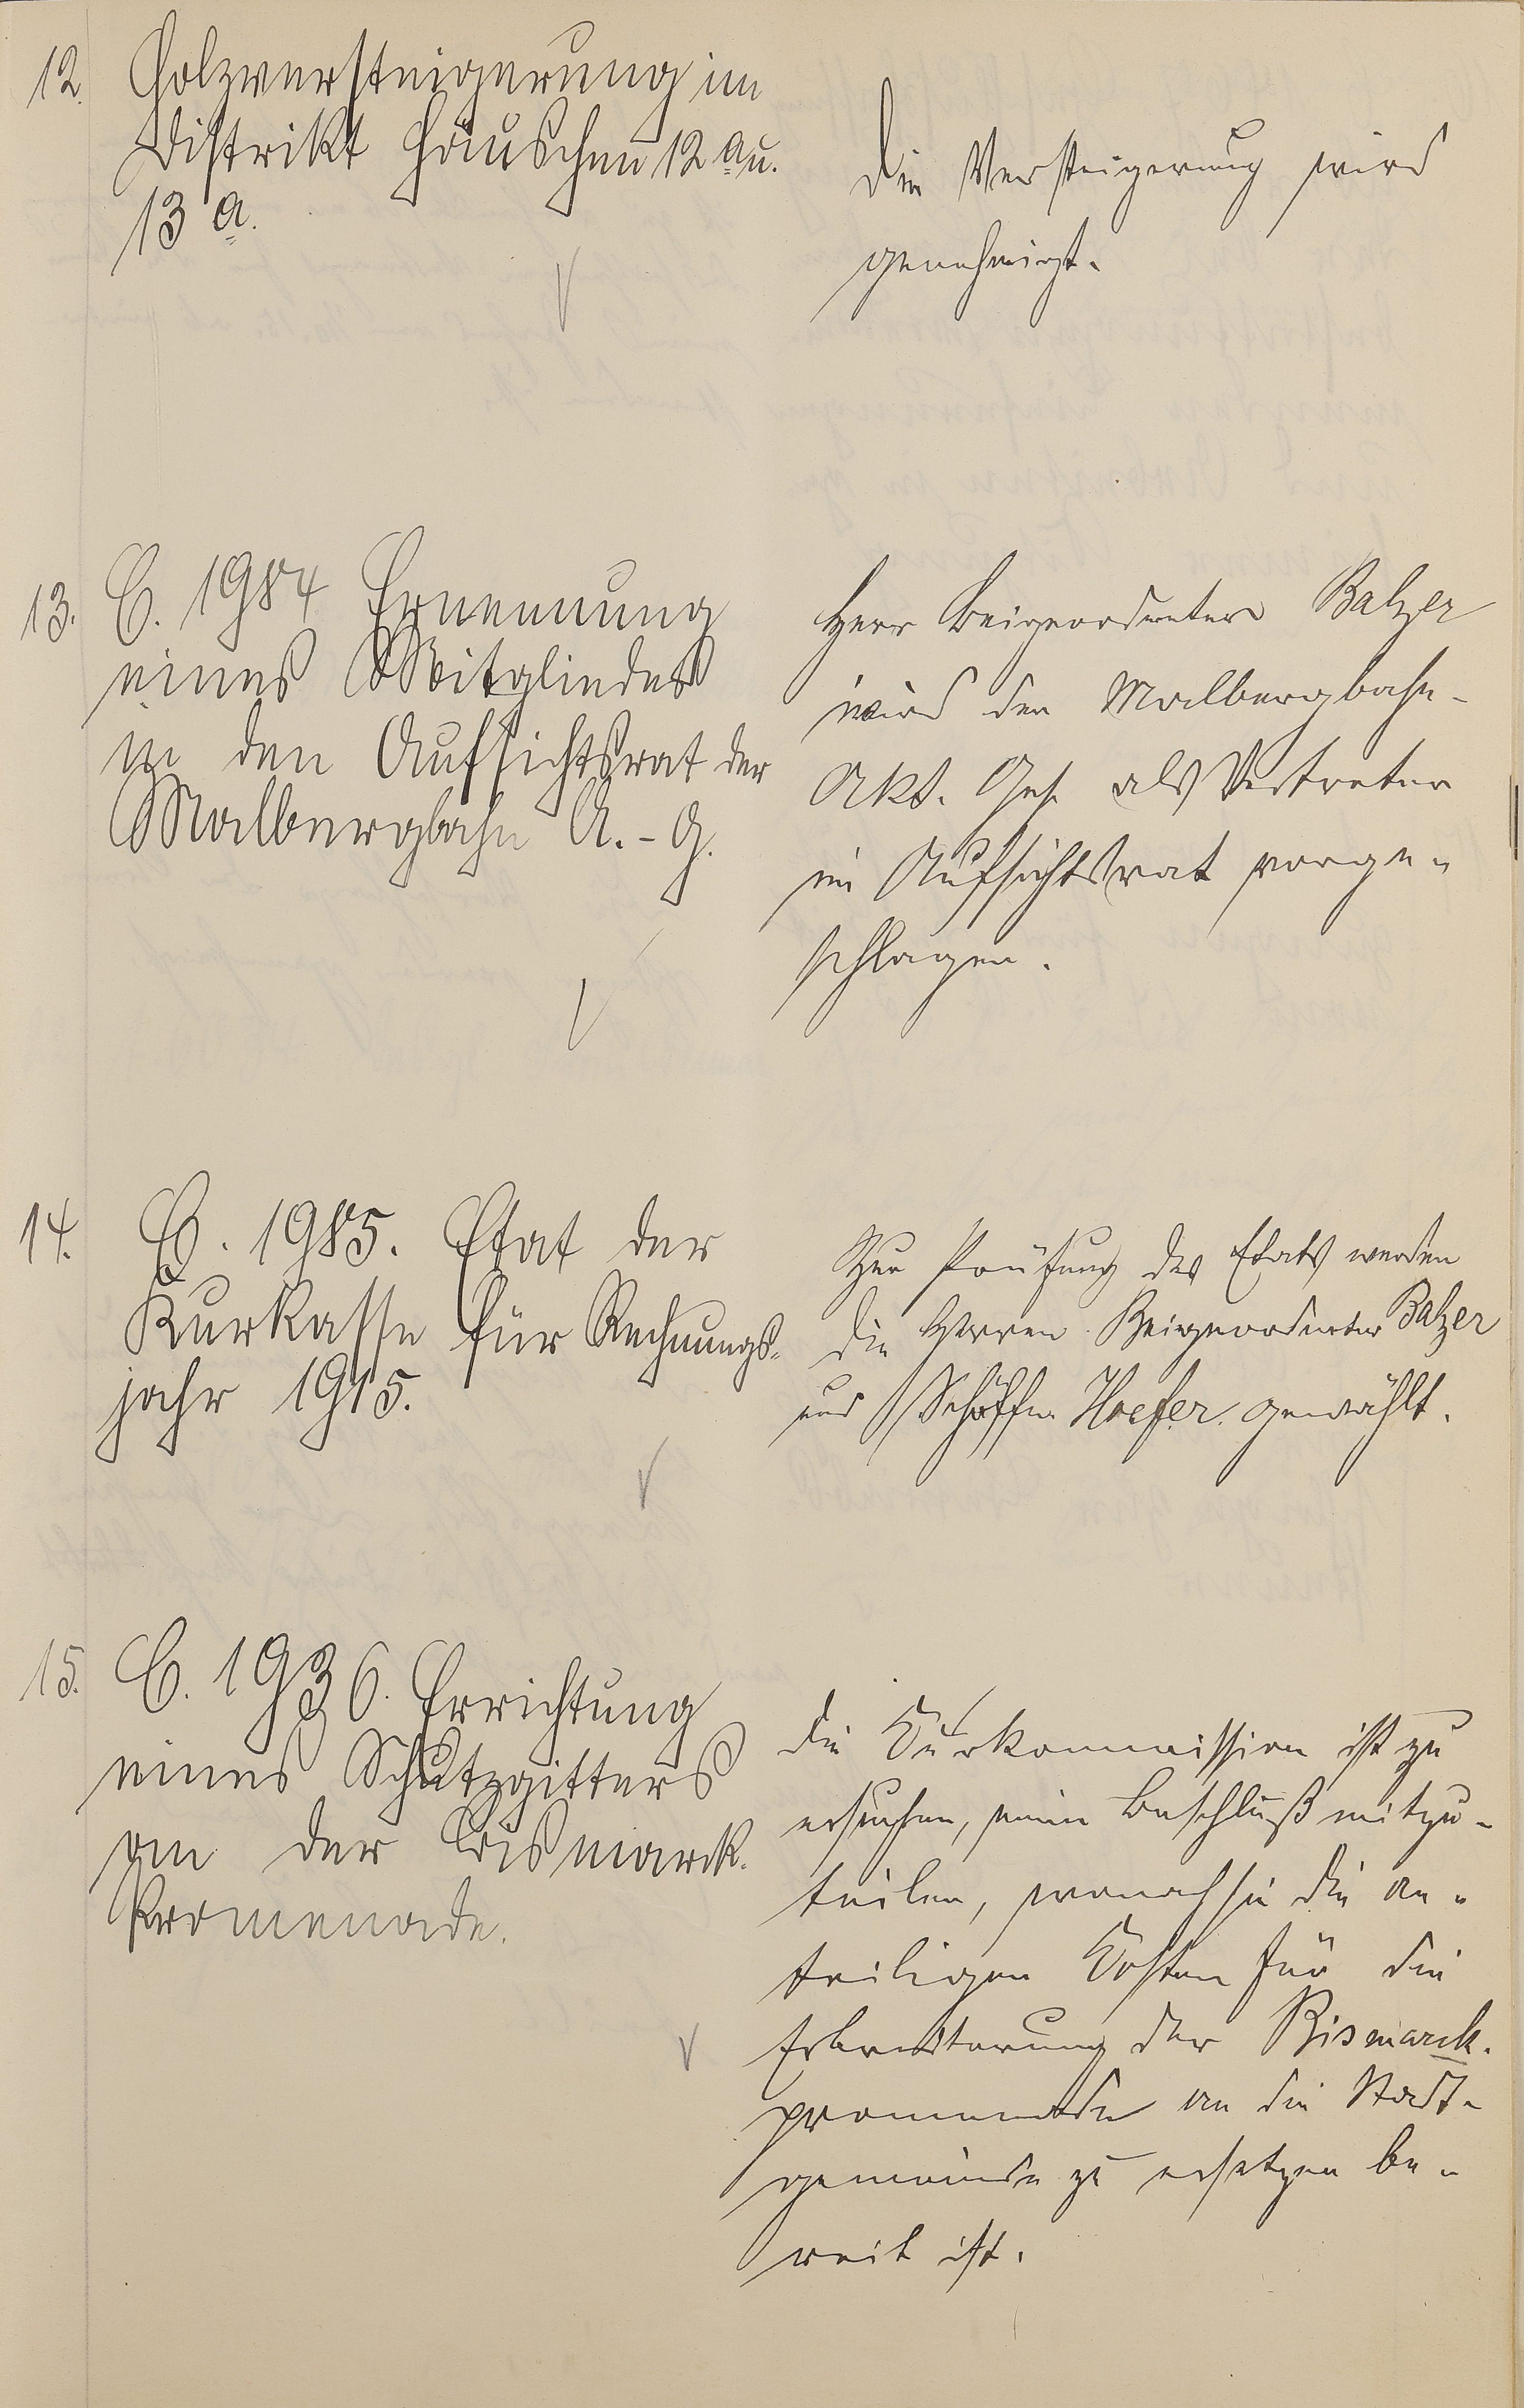 12. Holzversteigerung im
Distrikt Häuschen 12 a u.
13 a.
Die Versteigerung wird
genehmigt.
13. C. 1984 Ernennung
eines Mitgliedes
in den Aufsichtsrat der
Malbergbahn A.-G.
Herr Beigeordneter Balzer
wird der Malbergbahn-
Akt. Ges. als Vertreter
im Aufsichtsrat vorge-
schlagen.
14. C. 1985. Etat der
Kurkasse für Rechnungs-
jahr 1915.
Zur Prüfung des Etats werden
die Herren Beigeordneter Balzer
und Schöffen Hoefer gewählt.
15. C. 1936. Errichtung
eines Schutzgitters
an der Bismarck-
Promenade.
Die Kurkommission ist zu
ersuchen, einen Beschluß mitzu-
teilen, wonach sie die an-
teiligen Kosten für die
Erbreiterung der Bismarck-
promenade an die Stadt-
gemeinde zu ersetzen be-
reit ist.